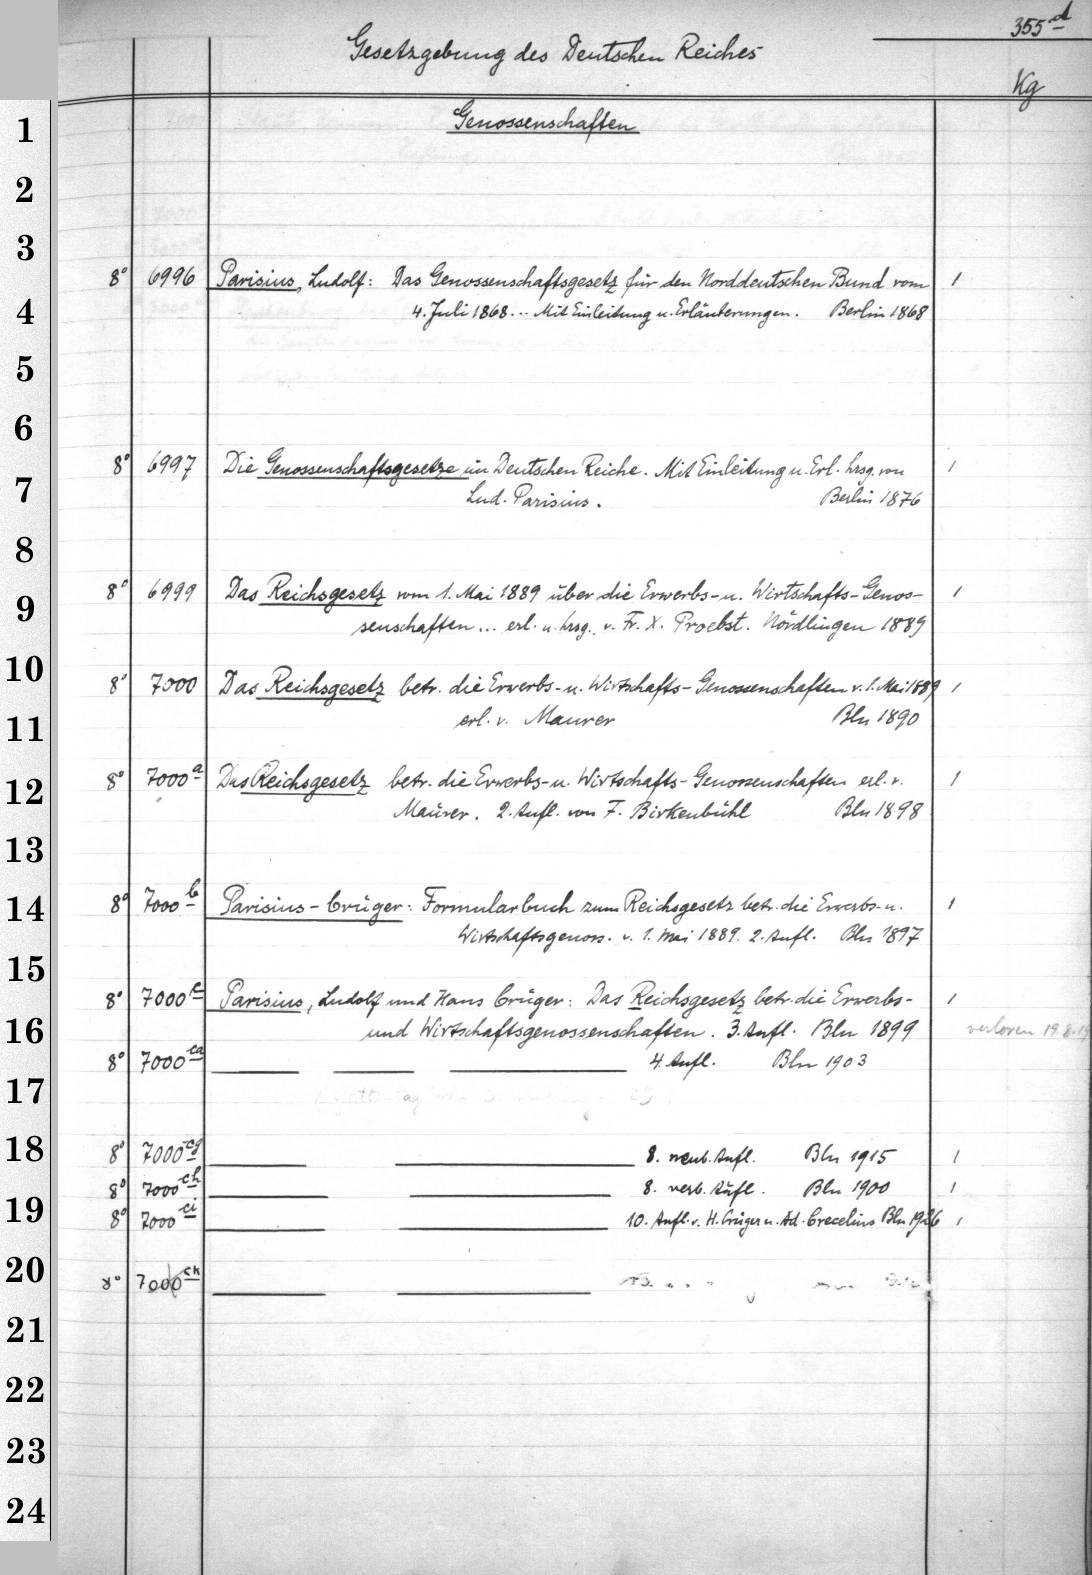 355 d
Gesetzgebung des Deutschen Reiches
Kg
Genossenschaften
1
2
3
8° 6996 Parisius, Ludolf: Das Genossenschaftsgesetz für den Norddeutschen Bund vom 1
4 4. Juli 1868... Mit Einleitung u. Erläuterungen. Berlin 1868
5
6
8° 6997 Die Genossenschaftsgesetze im Deutschen Reiche. Mit Einleitung u. Erl. hrsg. von 1
7 Lud. Parisius. Berlin 1876
8
8° 6999 Das Reichsgesetz vom 1. Mai 1889 über die Erwerbs- u. Wirtschafts-Genos- 1
9 senschaften... erl. u. hrsg. v. Fr. X. Proebst. Nördlingen 1889
10 8° 7000 Das Reichsgesetz betr. die Erwerbs- u. Wirtschafts-Genossenschaften v. 1. Mai 1889 1
11 erl. v. Maurer Bln 1890
12 8° 7000 a Das Reichsgesetz betr. die Erwerbs- u. Wirtschafts-Genossenschaften erl. v. 1
Maurer. 2. Aufl. von F. Birkenbühl Bln 1898
13
14 8° 7000 b Parisius-Crüger: Formularbuch zum Reichsgesetz betr. die Erwerbs- u. 1
Wirtschaftsgenoss. v. 1. Mai 1889. 2. Aufl. Bln 1897
15
8° 7000 c Parisius, Ludolf und Hans Crüger: Das Reichsgesetz betr. die Erwerbs- 1
16 und Wirtschaftsgenossenschaften. 3. Aufl. Bln 1899 verloren 19.8.
8° 7000 ca 4. Aufl. Bln 1903
17
18 8° 7000 cg 8. neub. Aufl. Bln 1915 1
8° 7000 ch 8. verb. Aufl. Bln 1900 1
19 8° 7000 ci 10. Aufl. v. H. Crüger u. Ad. Crecelius Bln 1926 1
20 8° 7000 ck
21
22
23
24